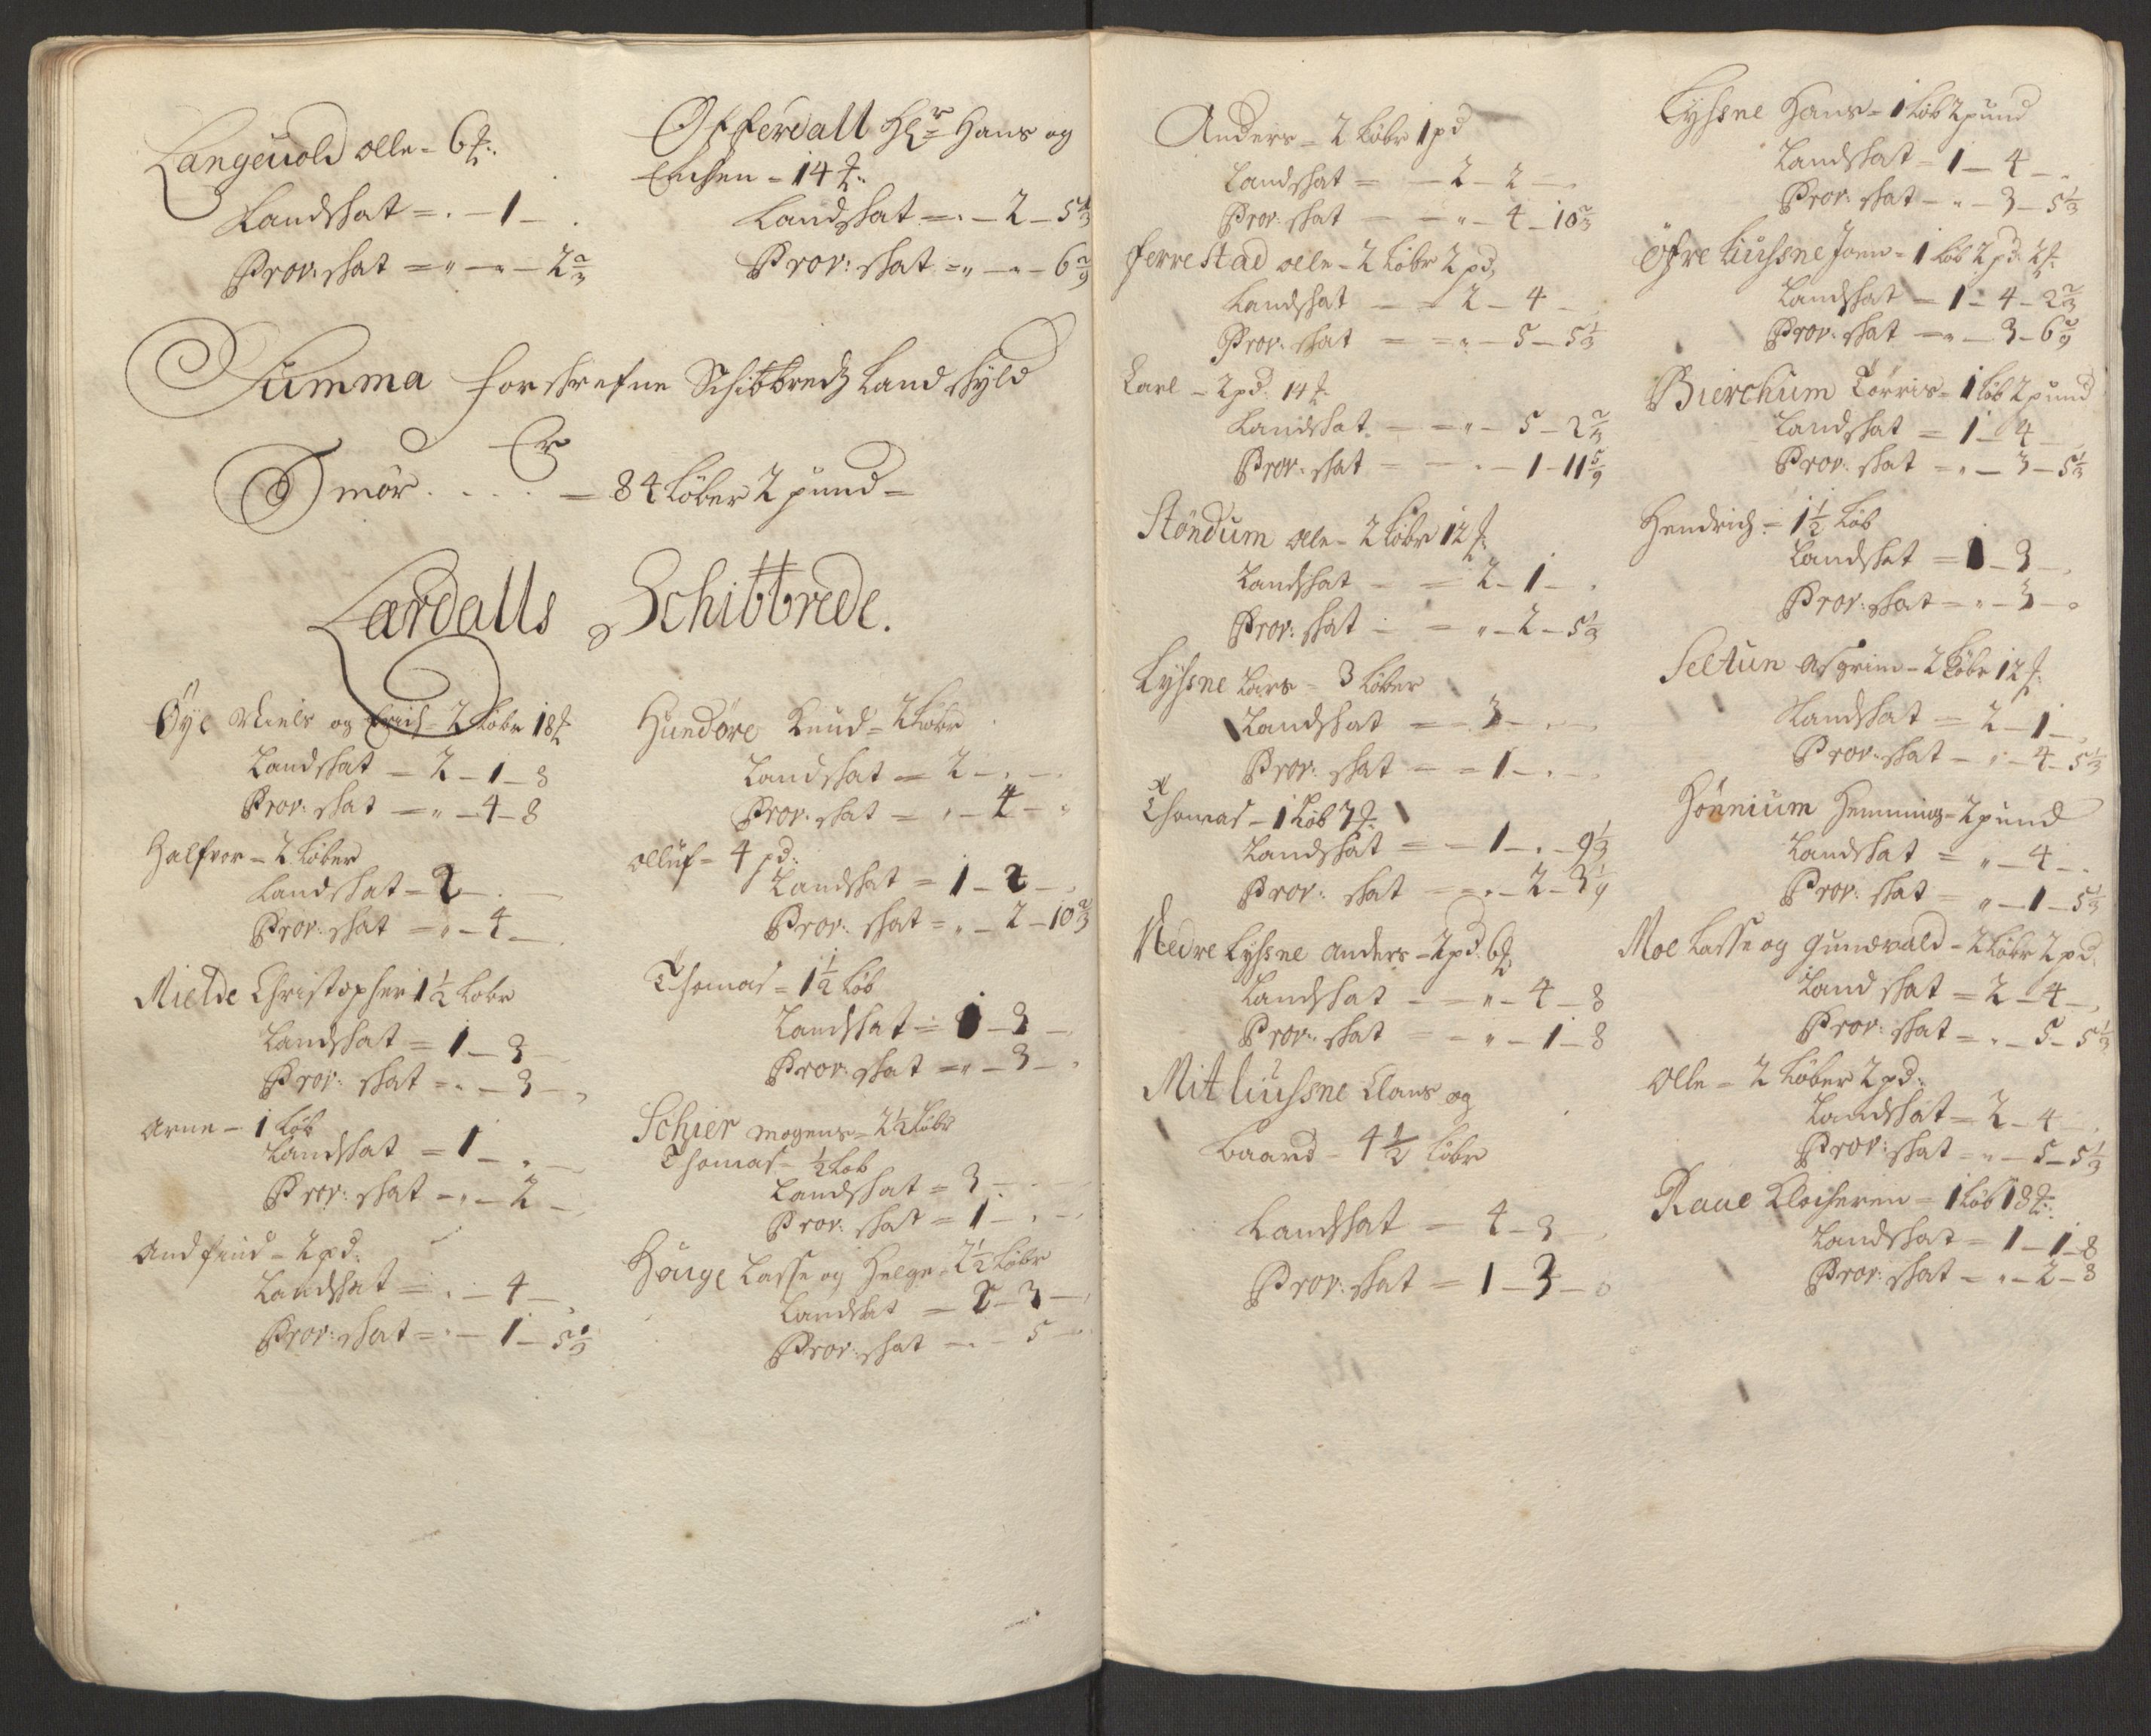 Langeuold olle - 6 ℔:
Landskat = . - 1 - .
Prov: skat = „ - „ - 2 2/3
Offerdall Hr Hans og
Enchen - 14 ℔:
Landskat = . - 2 - 5 1/3
Prov: skat = „ - „ - 6 2/9
Summa forskrefne Schibbredz Landskyld
Er
Smör . . . . = 84 Löber 2 pund =
Lærdalls Schibbrede.
Öye Niels og Erich - 2 Löbr 18 ℔
Landskat - 2 - 1 - 8
Prov: skat = „ - 4 - 8
Halfvor - 2 Löber
Landskat - 2 - . -
Prov: skat = „ - 4 - .
Mielde Christopher 1 1/2 Löbr
Landskat = 1 - 3 -
Prov: skat = „ - 3 - .
Arne - 1 Löb
Landskat = 1 - . -
Prov: skat - „ - 2 -
And feind - 2 pd:
Landskat = . - 4 - .
Prov: skat = . - 1 - 5 1/3
Hundöre Knud - 2 Löbr
Landskat = 2 - . - .
Prov: skat = „ - 4 - „
Olluf - 4 pd:
Landskat = 1 - 2 - .
Prov: skat = „ - 2 - 10 2/3
Thomas - 1 1/2 Löb
Landskat = 1 - 3 -
Prov: skat = „ - 3 - .
Schier Mogens - 2 1/2 Löbr
Thomas - 1/2 Löb
Landskat = 3 - . -
Prov: skat = 1 - . -
Houge Lasse og Helge - 2 1/2 Löbr
Landskat = 2 - 3 -
Prov: skat - . - 5 - .
Anders - 2 Löbr 1 pd
Landskat = - 2 - 2 - .
Prov: skat - - „ - 4 - 10 2/3
Ferrestad olle - 2 Löbr 2 pd,
Landskat - = 2 - 4 - .
Prov: skat = = „ - 5 - 5 1/3
Carl - 2 pd: 14 ℔
Landskat. - = „ - 5 - 2 2/3
Prov: skat - - . - 1 - 11 5/9
Stöndum olle - 2 Löbr 12 ℔:
Landskat - = 2 - 1 - .
Prov: skat - = „ - 2 - 5 1/3
Lyhsne Lars - 3 Löber
Landskat = = 3 - . -
Prov: skat - = 1 - . -
Thomas - 1 Löb 7 ℔.
Landskat = - 1 - . - 9 1/3
Prov: skat - = „ - 2 - 3 1/9
Nedre Lyhsne Anders - 2 pd: 6 ℔
Landskat - = „ - 4 - 8
Prov: skat - - „ - 1 - 8
Mitliuhsne Claus og
Baard - 4 1/2 Löbr
Landskat = 4 - 3 - .
Prov: skat = 1 - 3 - .
Lyhsne Hans - 1 Löb 2 pund
Landskat = 1 - 4 - .
Prov: skat - „ - 3 - 5 1/3
Öfre Liuhsne Joen - 1 Löb 2 pd: 2 ℔
Landskat = 1 - 4 - 2 2/3
Prov: skat = „ - 3 - 6 2/9
Bierchum Torris - 1 Löb 2 pund
Landskat = 1 - 4 -
Prov: skat = „ - 3 - 5 1/3
Hendrich - 1 1/2 Löb
Landskat = 1 - 3 - .
Prov: skat = „ - 3 - .
Seltun Asgrim - 2 Löbr 12 ℔:
Landskat = 2 - 1 - .
Prov: skat - „ - 4 - 5 1/3
Hönnium Hemming - 2 pund
Landskat = „ - 4 - .
Prov: skat = „ - 1 - 5 1/3
Moe Lasse og Gundvald - 2 Löbr 2 pd.
Landskat = 2 - 4 - .
Prov: skat = „ - 5 - 5 1/3
Olle - 2 Löber 2 pd:
Landskat = 2 - 4 - .
Prov: skat = „ - 5 - 5 1/3
Raae Klocheren - 1 Löb 18 ℔:
Landskat = 1 - 1 - 8
Prov: skat = „ - 2 - 8